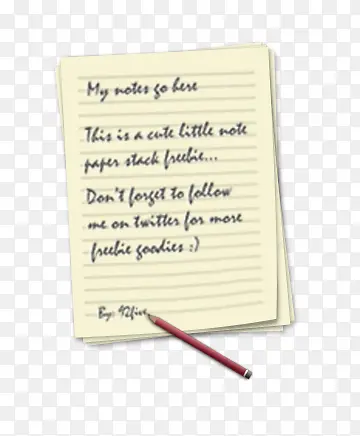 My notes go here
This is a cute little note
paper stack freebie...
Don't forget to follow
me on twitter for more
freebie goodies :)
By: 42five